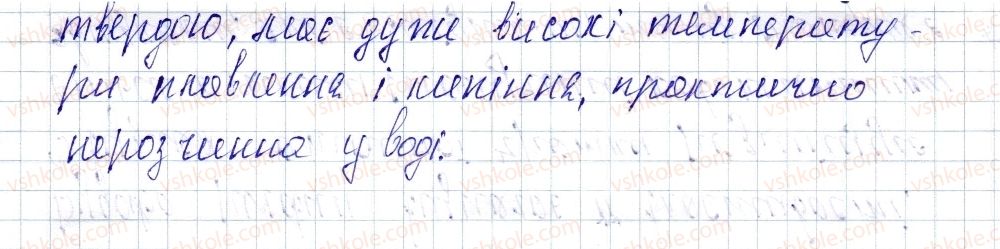 твердою; має дуже високі температу-
ри плавлення і кипіння, практично
нерозчинна у воді.